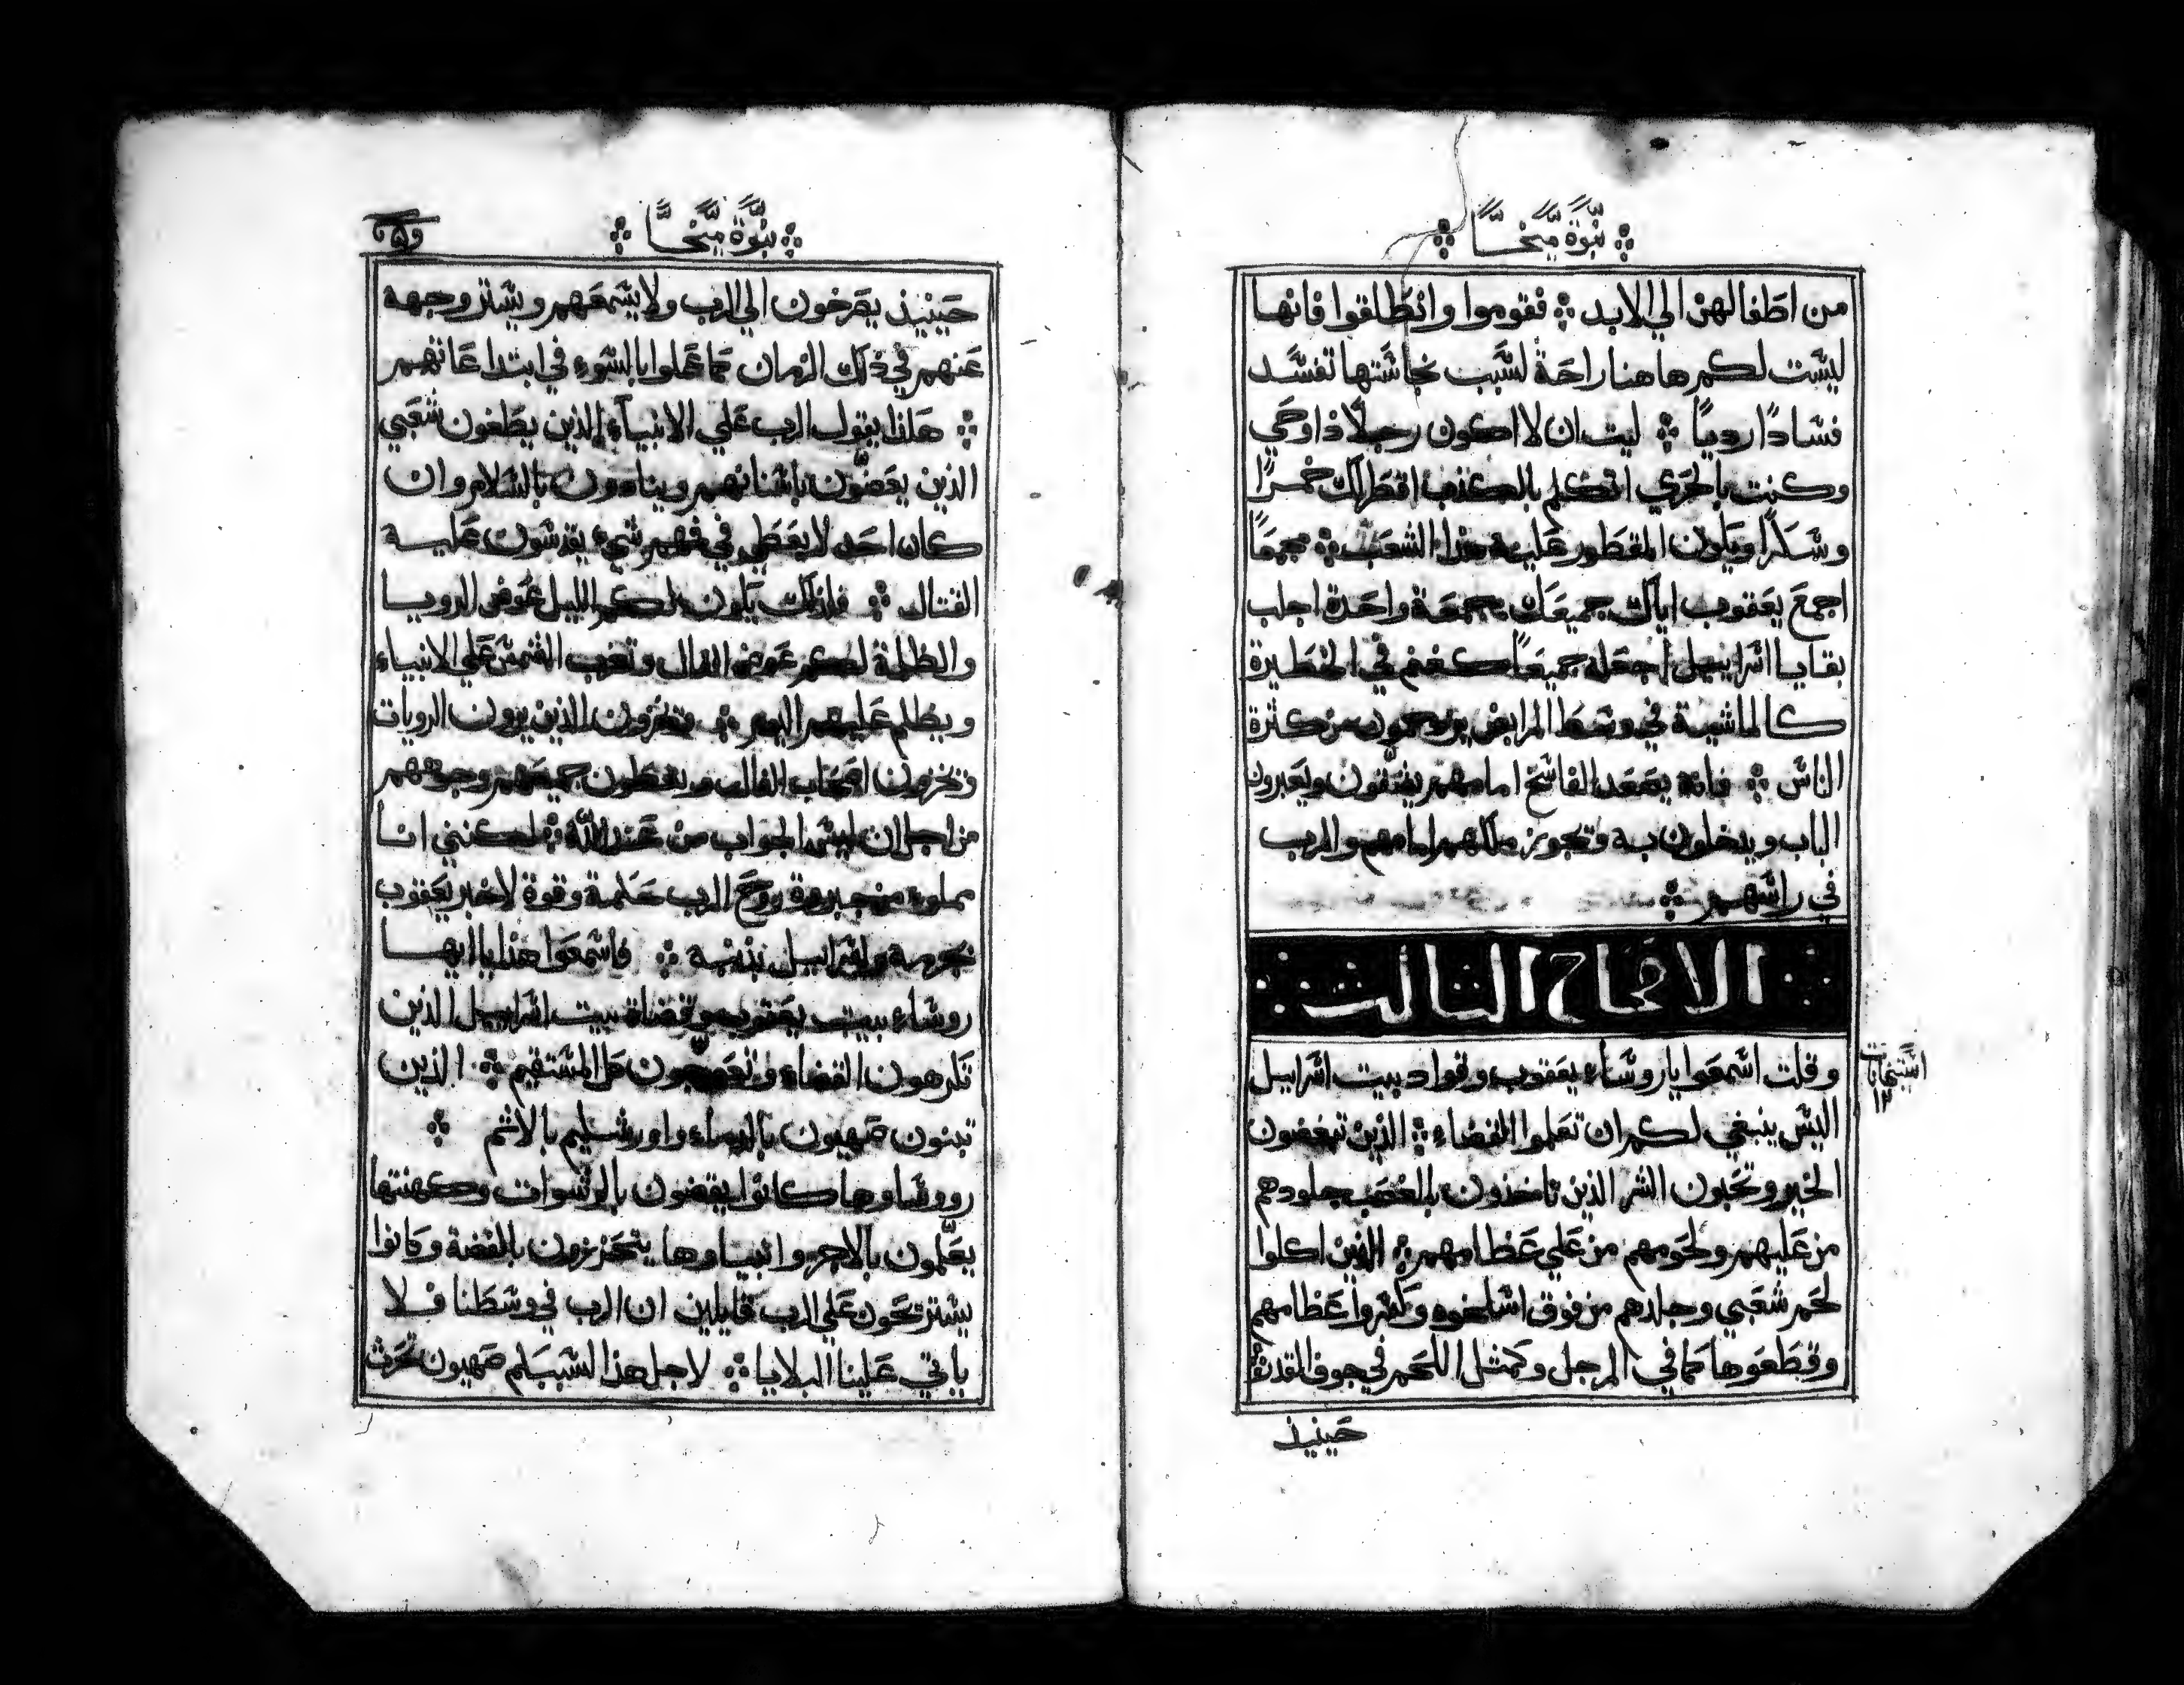 نبوة ميخا
من اطفالهن الي الابد فقوموا وانطلقوا فانها
ليست لكم هاهنا راحة لسبب نجاستها تفسد
فسادًا رديًا ليت ان لا اكون رجلًا ذا وحي
وكنت بالحري اتكلم بالكذب اقطر لك خمرًا
وسكرًا ويكون المقطور عليه هذا الشعب جمعًا
اجمع يعقوب اياك جميعك بجمعة واحدة اجلب
بقايا اسراييل اجعله جميعًا كغنم في الحظيرة
كالماشية في وسط المرابض يزدحمون من كثرة
الناس فانه يصعد الفاسخ امامهم يفتقون ويعبرون
الباب ويدخلون به وتجوز ملكهم امامهم والرب
في راسهم
الاصحاح الثالث
وقلت اسمعوا يا روساء يعقوب وقواد بيت اسراييل
اليس ينبغي لكم ان تعلموا القضاء الذين تبغضون
الخير وتحبون الشر الذين تاخذون بالغصب جلودهم
من عليهم ولحومهم من علي عظامهم الذين اكلوا
لحم شعبي وجلدهم من فوق اسلخوه وكسروا عظامهم
وقطعوها كما في المرجل وكمثل اللحم في جوف القدر
حينيذ
نبوة ميخا
حينيذ يصرخون الي الرب ولا يسمعهم ويستر وجهه
عنهم في ذلك الزمان كما عملوا بالسوء في ابتداعاتهم
هاذا يقول الرب علي الانبياء الذين يطغون شعبي
الذين يعضّون باسنانهم وينادون بالسلام وان
كان احد لا يعطي في فمهم شيء يقدسون عليه
القتال فلذلك يكون لكم الليل عوض الرويا
والظلمة لكم عوض الفال وتغرب الشمس علي الانبياء
ويظلم عليهم اليوم وتخزون الذين يرون الرويات
وتخزون اصحاب الفال ويغطون جميعهم وجوههم
من اجل ان ليس الجواب من عند الله لكنني انا
مملوء من جبروة روح الرب حكمة وقوة لاخبر يعقوب
بجرمه واسراييل بذنبه فاسمعوا هذا يا ايها
روساء بيت يعقوب وقضاة بيت اسراييل الذين
تكرهون القضاء وتعوجون كل المستقيم الذين
تبنون صهيون بالدماء واورشليم بالاثم
وروساوها كانوا يقضون بالرشوات وكهنتها
يعلّمون بالاجر وانبياوها يتحزرون بالفضة وكانوا
يستريحون علي الرب قايلين ان الرب في وسطنا فلا
ياتي علينا البلايا لاجل هذا السبب كم صهيون تحرث